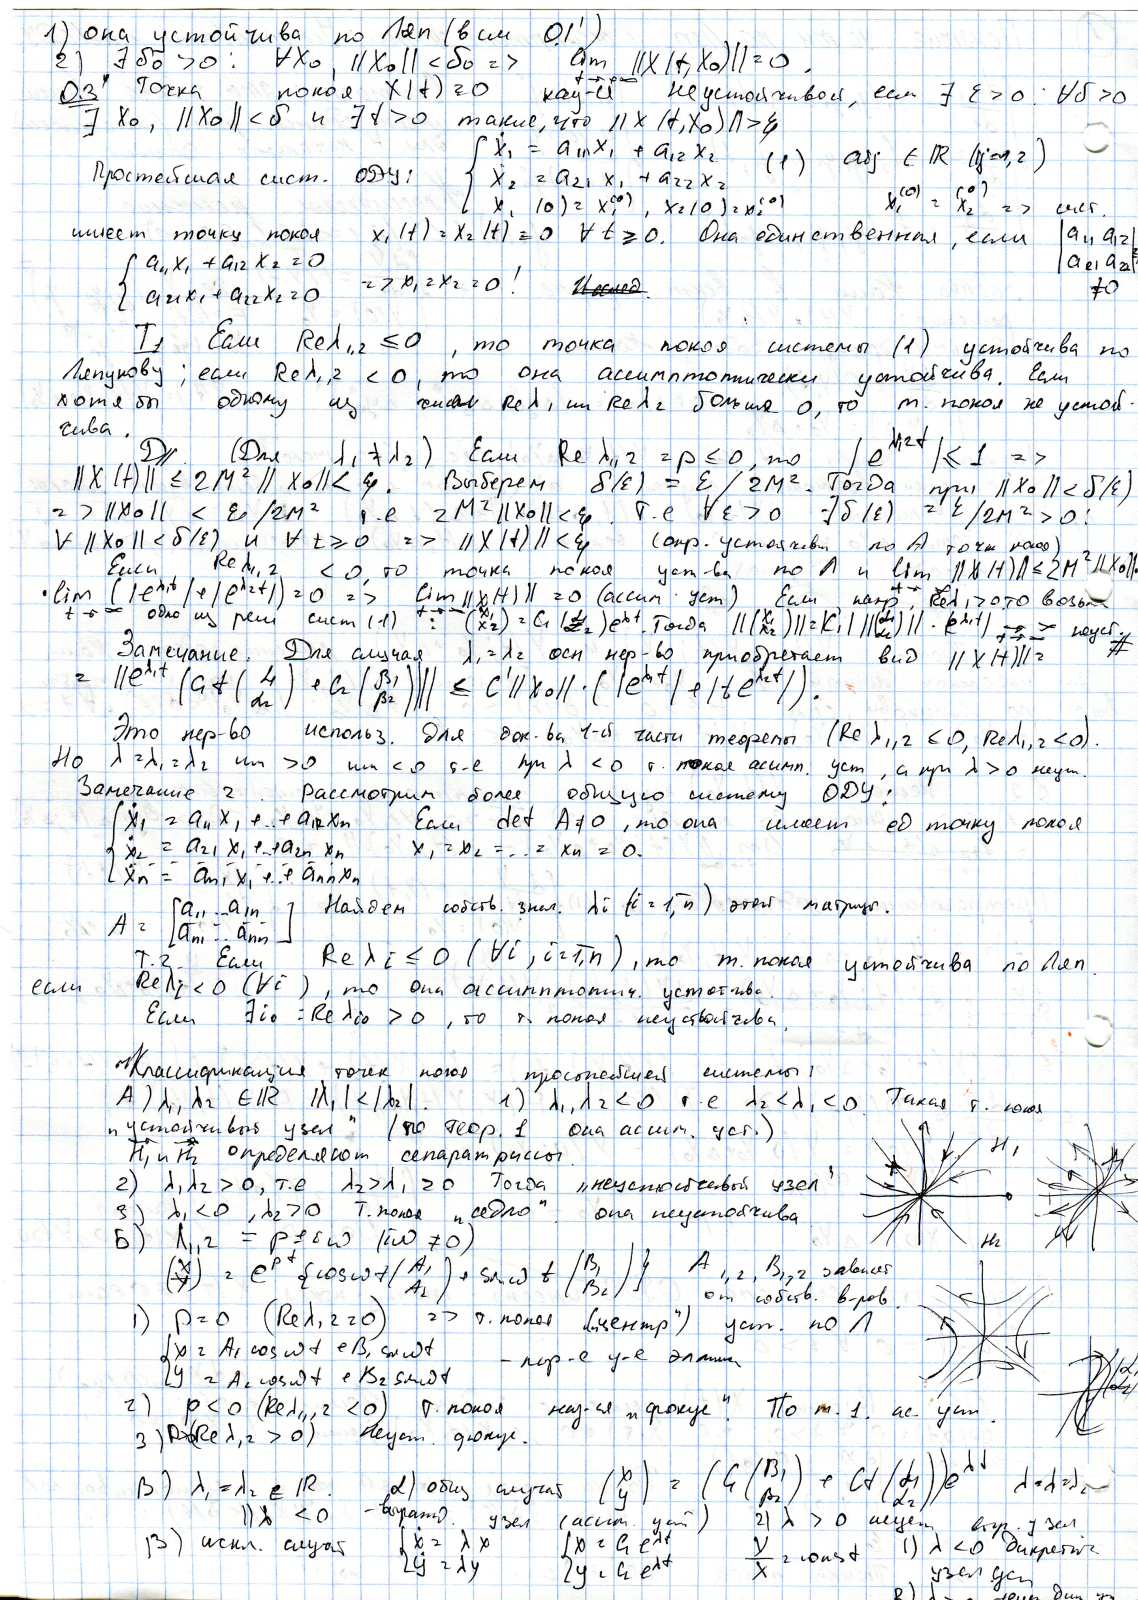 1) она устойчива по Ляп (в см О.1')
2) ∃ δ₀ > 0 : ∀x₀, ||X₀|| < δ₀ => lim t→+∞ ||X(t, X₀)|| = 0.
О.3' Точка покоя X(t) ≡ 0 наз-ся неустойчивой, если ∃ ε > 0 : ∀δ > 0
∃ x₀, ||X₀|| < δ и ∃ t > 0 такие, что ||X(t, X₀)|| > ε
Простейшая сист. ОДУ: { ẋ₁ = a₁₁x₁ + a₁₂x₂ (1) aij ∈ ℝ (ij=1,2)
ẋ₂ = a₂₁x₁ + a₂₂x₂
x₁(0) = x₁⁽⁰⁾, x₂(0) = x₂⁽⁰⁾ x₁⁽⁰⁾ = x₂⁽⁰⁾ => сист.
имеет точку покоя x₁(t) = x₂(t) = 0 ∀t ≥ 0. Она единственная, если |a₁₁ a₁₂|
{ a₁₁x₁ + a₁₂x₂ = 0 |a₂₁ a₂₂|
a₂₁x₁ + a₂₂x₂ = 0 => x₁ = x₂ = 0! ≠0
T₁ Если Reλ₁,₂ ≤ 0, то точка покоя системы (1) устойчива по
Ляпунову; если Reλ₁,₂ < 0, то она ассимптотически устойчива. Если
хотя бы одному из чисел Reλ₁ или Reλ₂ больше 0, то т. покоя не устой-
чива.
D// (Для λ₁ ≠ λ₂) Если Reλ₁,₂ = p ≤ 0, то |e^λ₁,₂t| ≤ 1 =>
||X(t)|| ≤ 2M² ||X₀|| < ε. Выберем δ(ε) = ε/2M². Тогда при ||X₀|| < δ(ε)
=> ||X₀|| < ε/2M² т.е 2M²||X₀|| < ε. Т.е ∀ε > 0 ∃δ(ε) = ε/2M² > 0:
∀ ||X₀|| < δ(ε) и ∀t ≥ 0 => ||X(t)|| < ε (опр. устойчив по Л точк покоя)
Если Reλ₁,₂ < 0, то точка покоя уст-ва по Л и lim ||X(t)|| ≤ 2M²||X₀||.
· lim t→∞ (|e^λ₁t| + |e^λ₂t|) = 0 => lim t→∞ ||X(t)|| = 0 (ассим. уст) Если напр, Reλ₁ > 0, то возьм
одно из реш сист (1) : (x₁ x₂) = C₁(α₁ α₂)e^λ₁t. Тогда ||(x₁ x₂)|| = |C₁| ||(α₁ α₂)|| · |e^λ₁t| → ∞ t→+∞ неуст. #
Замечание. Для случая λ₁ = λ₂ осн нер-во приобретает вид ||X(t)|| =
= ||e^λ₁t (C₁t(α₁ α₂) + C₂(β₁ β₂))|| ≤ C'||X₀|| · (|e^λ₁t| + |te^λ₂t|).
Это нер-во использ. для док-ва 1-й части теоремы (Reλ₁,₂ ≤ 0, Reλ₁,₂ < 0).
Но λ = λ₁ = λ₂ или > 0 или < 0 т.е при λ < 0 т. покоя асимп. уст, а при λ > 0 неуст.
Замечание 2. Рассмотрим более общую систему ОДУ:
{ ẋ₁ = a₁₁x₁ + ... + a₁nxn Если det A ≠ 0, то она имеет ед точку покоя
ẋ₂ = a₂₁x₁ + ... + a₂nxn x₁ = x₂ = ... = xn = 0.
ẋn = an₁x₁ + ... + annxn
A = [a₁₁ ... a₁n Найдем собств. знач. λi (i = 1,n) этой матрицы.
an₁ ... ann]
Т.2. Если Reλi ≤ 0 (∀i, i=1,n), то т. покоя устойчива по Ляп.
если Reλi < 0 (∀i), то она ассимптотич. устойчива.
Если ∃i₀ : Reλi₀ > 0, то т. покоя неустойчива.
Классификация точек покоя простейшей системы:
А) λ₁, λ₂ ∈ ℝ |λ₁| < |λ₂|. 1) λ₁, λ₂ < 0 т.е λ₂ < λ₁ < 0. Такая т. покоя
„устойчивый узел" (по теор. 1 она ассим. уст.)
H₁ и H₂ определяют сепаратриссы. H₁
2) λ₁λ₂ > 0, т.е λ₂ > λ₁ > 0 Тогда „неустойчивый узел"
3) λ₁ < 0, λ₂ > 0 Т. покоя „седло" она неустойчива
H₂
Б) λ₁,₂ = p ± iω (iω ≠ 0)
(x y) = e^pt {cosωt (A₁ A₂) + sinωt (B₁ B₂)} A₁,₂, B₁,₂ зависят
от собств. в-ров.
1) p = 0 (Reλ₁,₂ = 0) => т. покоя („центр") уст. по Л
{ x = A₁ cosωt + B₁ sinωt
y = A₂ cosωt + B₂ sinωt - пар-е у-е эллипса
2) p < 0 (Reλ₁,₂ < 0) т. покоя наз-ся „фокус". По т. 1. ас. уст.
3) (Reλ₁,₂ > 0) Неуст. фокус.
В) λ₁ = λ₂ ∈ ℝ. α) общ случай (x y) = (C₁(β₁ β₂) + Ct(α₁ α₂))e^λt λ=λ₁=λ₂
1) λ < 0 - вырожд. узел (ассим. уст) 2) λ > 0 неуст выр. узел
β) искл. случай { ẋ = λx ẏ = λy { x = C₁e^λt y = C₂e^λt y/x = const 1) λ < 0 дикретич
узел уст